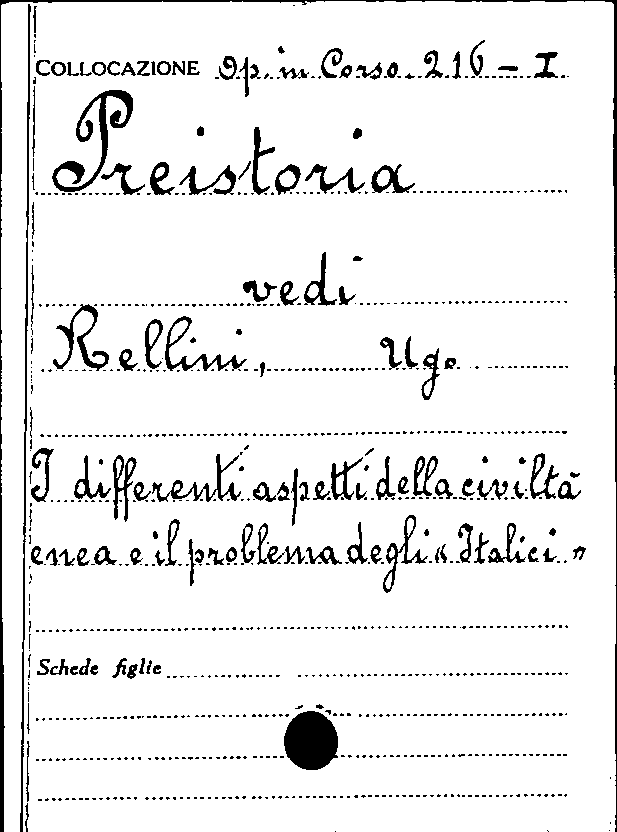 COLLOCAZIONE Op. in Corso. 216 - I
Preistoria
vedi
Rellini, Ugo
I differenti aspetti della civiltà
enea e il problema degli « Italici »
Schede figlie